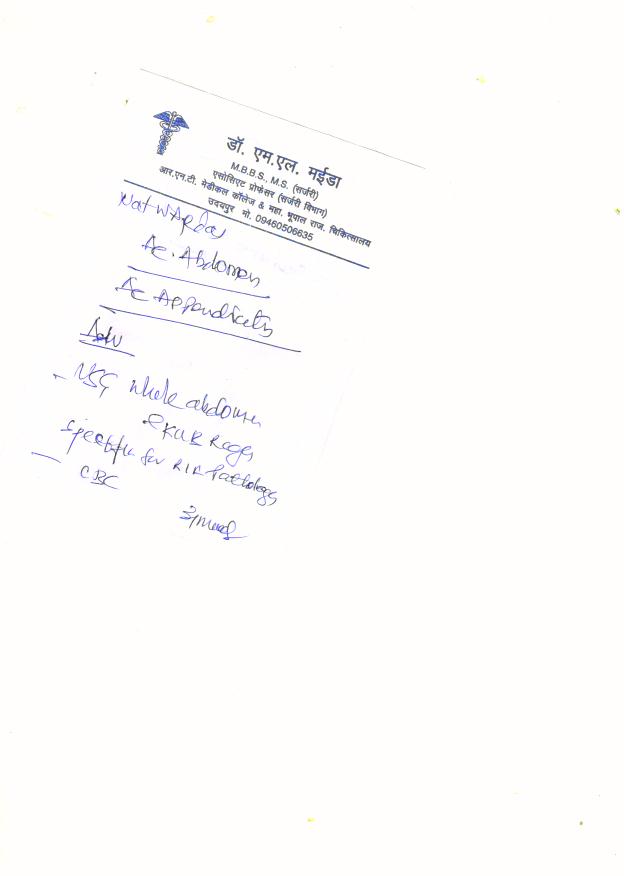 डॉ. एम.एल. मईडा
M.B.B.S., M.S. (सर्जरी)
एसोसिएट प्रोफेसर (सर्जरी विभाग)
आर.एन.टी. मेडीकल कॉलेज & महा. भूपाल राज. चिकित्सालय
उदयपुर मो. 09460506635
Ac. Abdomen
Ac Appendicitis
Adv
- USG whole abdomen
KUB Region
Specific for RIF Pathology
- CBC